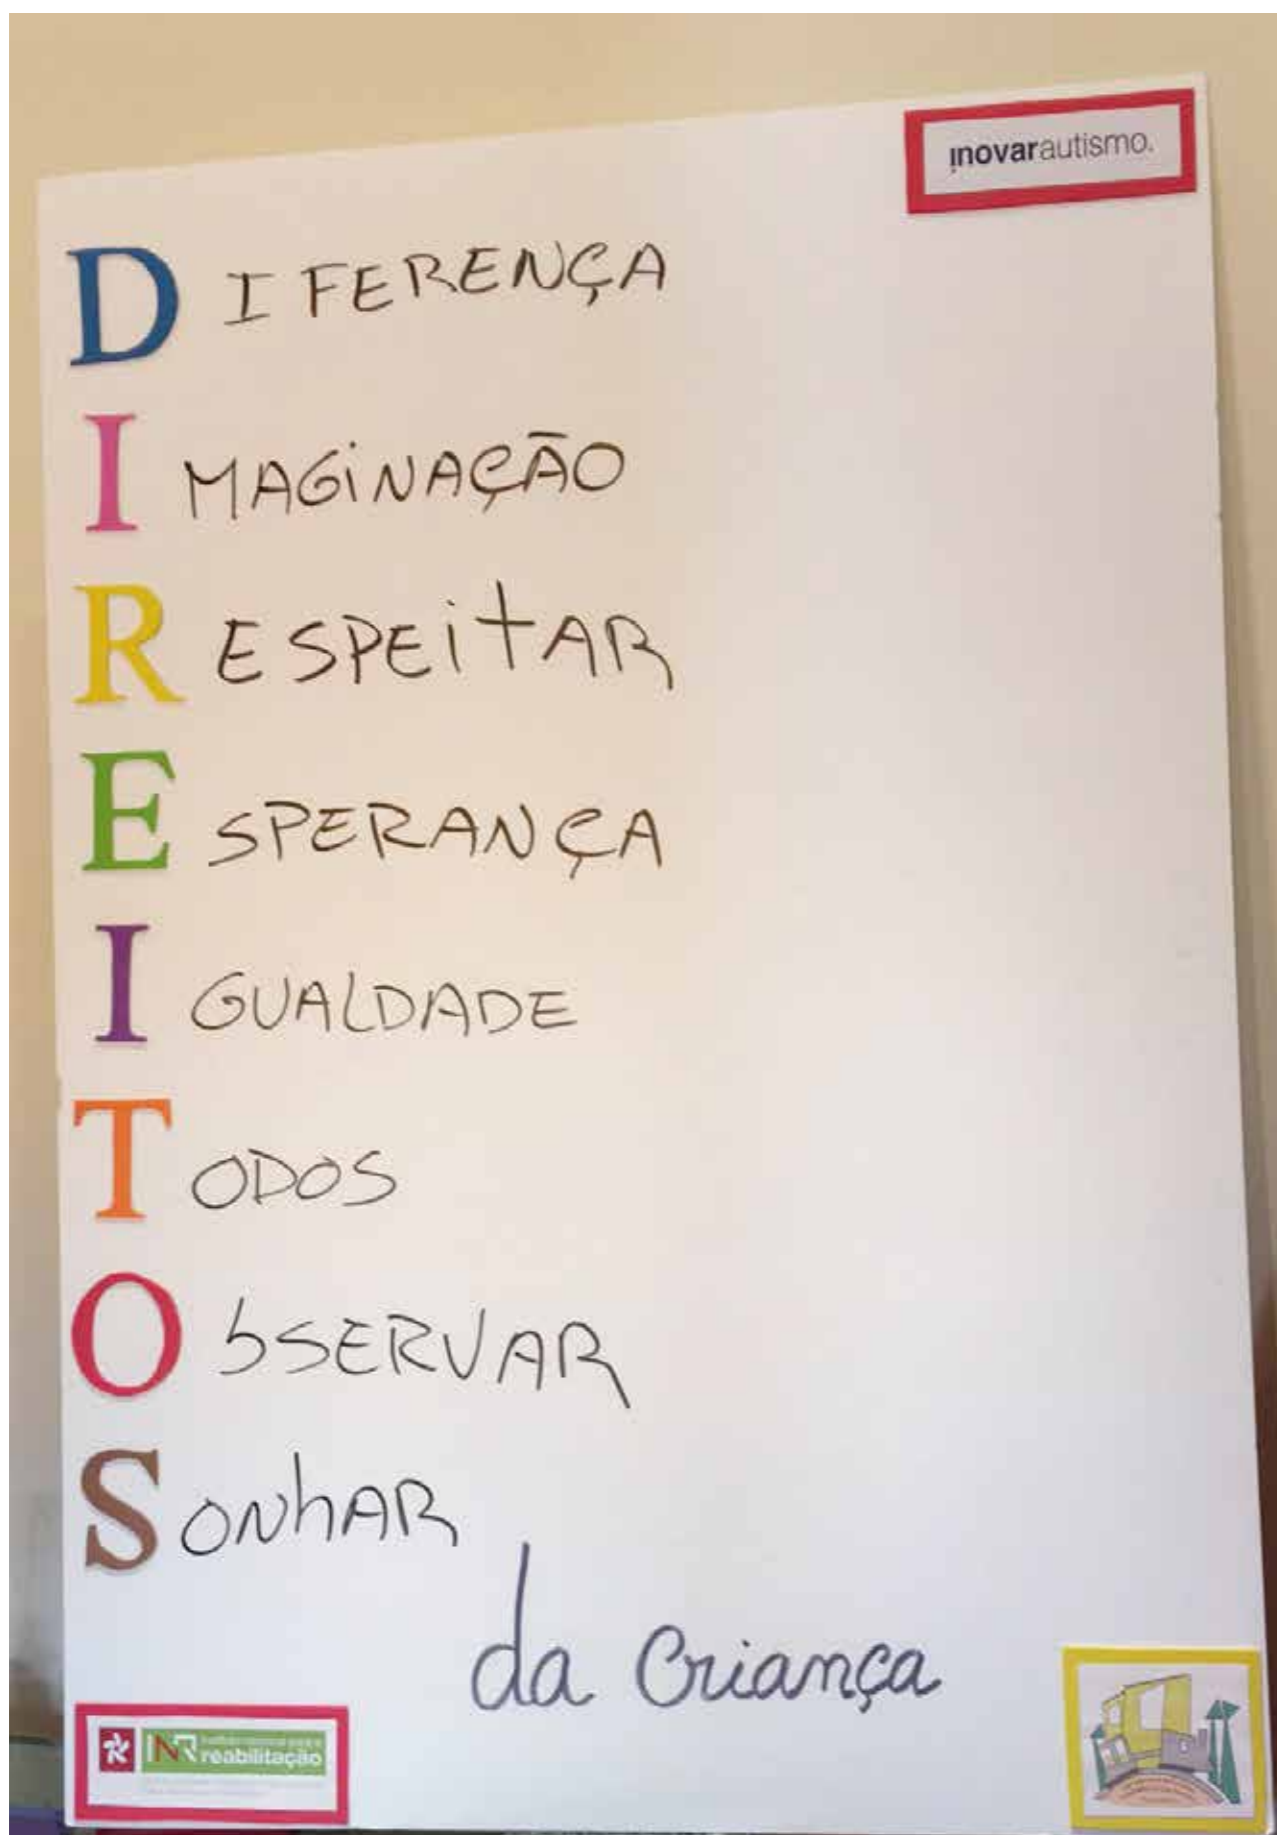 inovarautismo.
DIFERENÇA
IMAGINAÇÃO
RESPEITAR
ESPERANÇA
IGUALDADE
TODOS
ObSERVAR
SONhAR
da Criança
INR
reabilitação